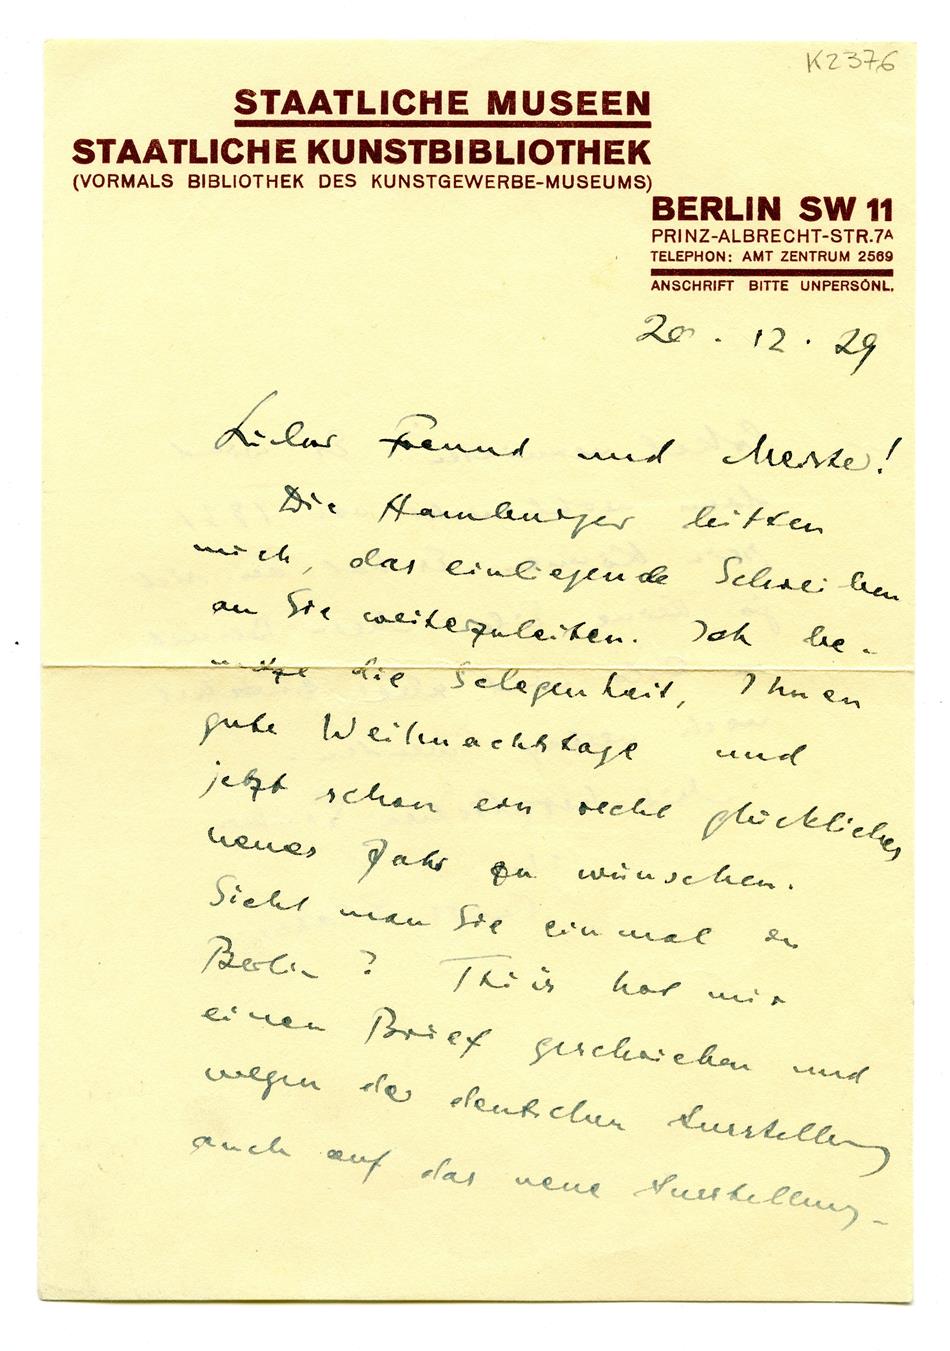 K2376
STAATLICHE MUSEEN
STAATLICHE KUNSTBIBLIOTHEK
(VORMALS BIBLIOTHEK DES KUNSTGEWERBE-MUSEUMS)
BERLIN SW 11
PRINZ-ALBRECHT-STR.7A
TELEPHON: AMT ZENTRUM 2569
ANSCHRIFT BITTE UNPERSÖNL.
20. 12. 29
Lieber Freund und Meister!
Die Hamburger bitten
mich, das einliegende Schreiben
an Sie weiterzuleiten. Ich be-
nutze die Gelegenheit, Ihnen
gute Weihnachtstage und
jetzt schon ein recht glückliches
neues Jahr zu wünschen.
Sieht man Sie einmal in
Berlin? Thiis hat mir
einen Brief geschrieben und
wegen der deutschen Ausstellung
auch auf das neue Ausstellung-